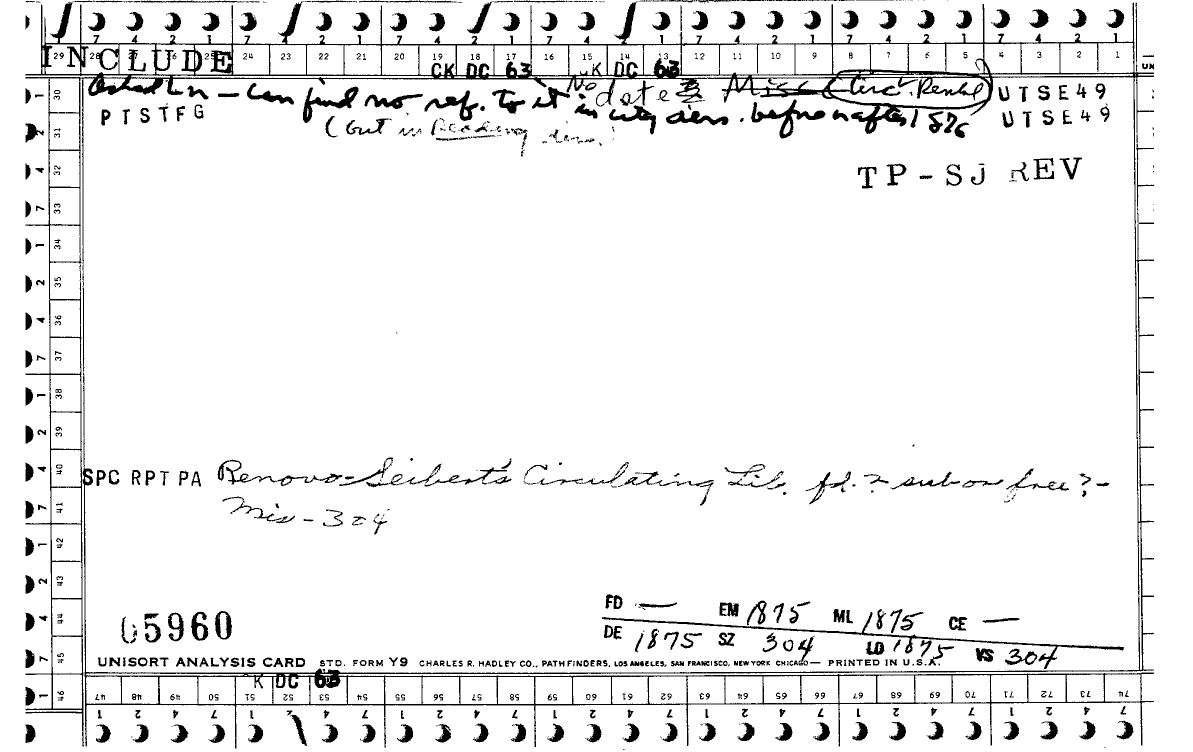 7 4 2 1 7 4 2 1 7 4 2 1 7 4 2 1 7 4 2 1 7 4 2 1 7 4 2 1
29 28 27 26 25 24 23 22 21 20 19 18 17 16 15 14 13 12 11 10 9 8 7 6 5 4 3 2 1
INCLUDE CK DC 63 CK DC 63
No dates Misc Circ. Rental UTSE49
Asked Ln – can find no ref. to it in city dirs. before or after 1876
PTSTFG UTSE49
(but in Reading dirs.)
TP-SJ REV
1 30
2 31
4 32
7 33
1 34
2 35
4 36
7 37
1 38
2 39
4 40
7 41
1 42
2 43
4 44
7 45
1 46
SPC RPT PA Renovo-Seibert's Circulating Lib. fd.? sub or free? -
Mis - 304
FD — EM 1875 ML 1875 CE —
05960 DE 1875 SZ 304 LD 1875 VS 304
UNISORT ANALYSIS CARD STD. FORM Y9 CHARLES R. HADLEY CO., PATHFINDERS, LOS ANGELES, SAN FRANCISCO, NEW YORK CHICAGO — PRINTED IN U.S.A.
K DC 63
47 48 49 50 51 52 53 54 55 56 57 58 59 60 61 62 63 64 65 66 67 68 69 70 71 72 73 74
1 2 4 7 1 2 4 7 1 2 4 7 1 2 4 7 1 2 4 7 1 2 4 7 1 2 4 7